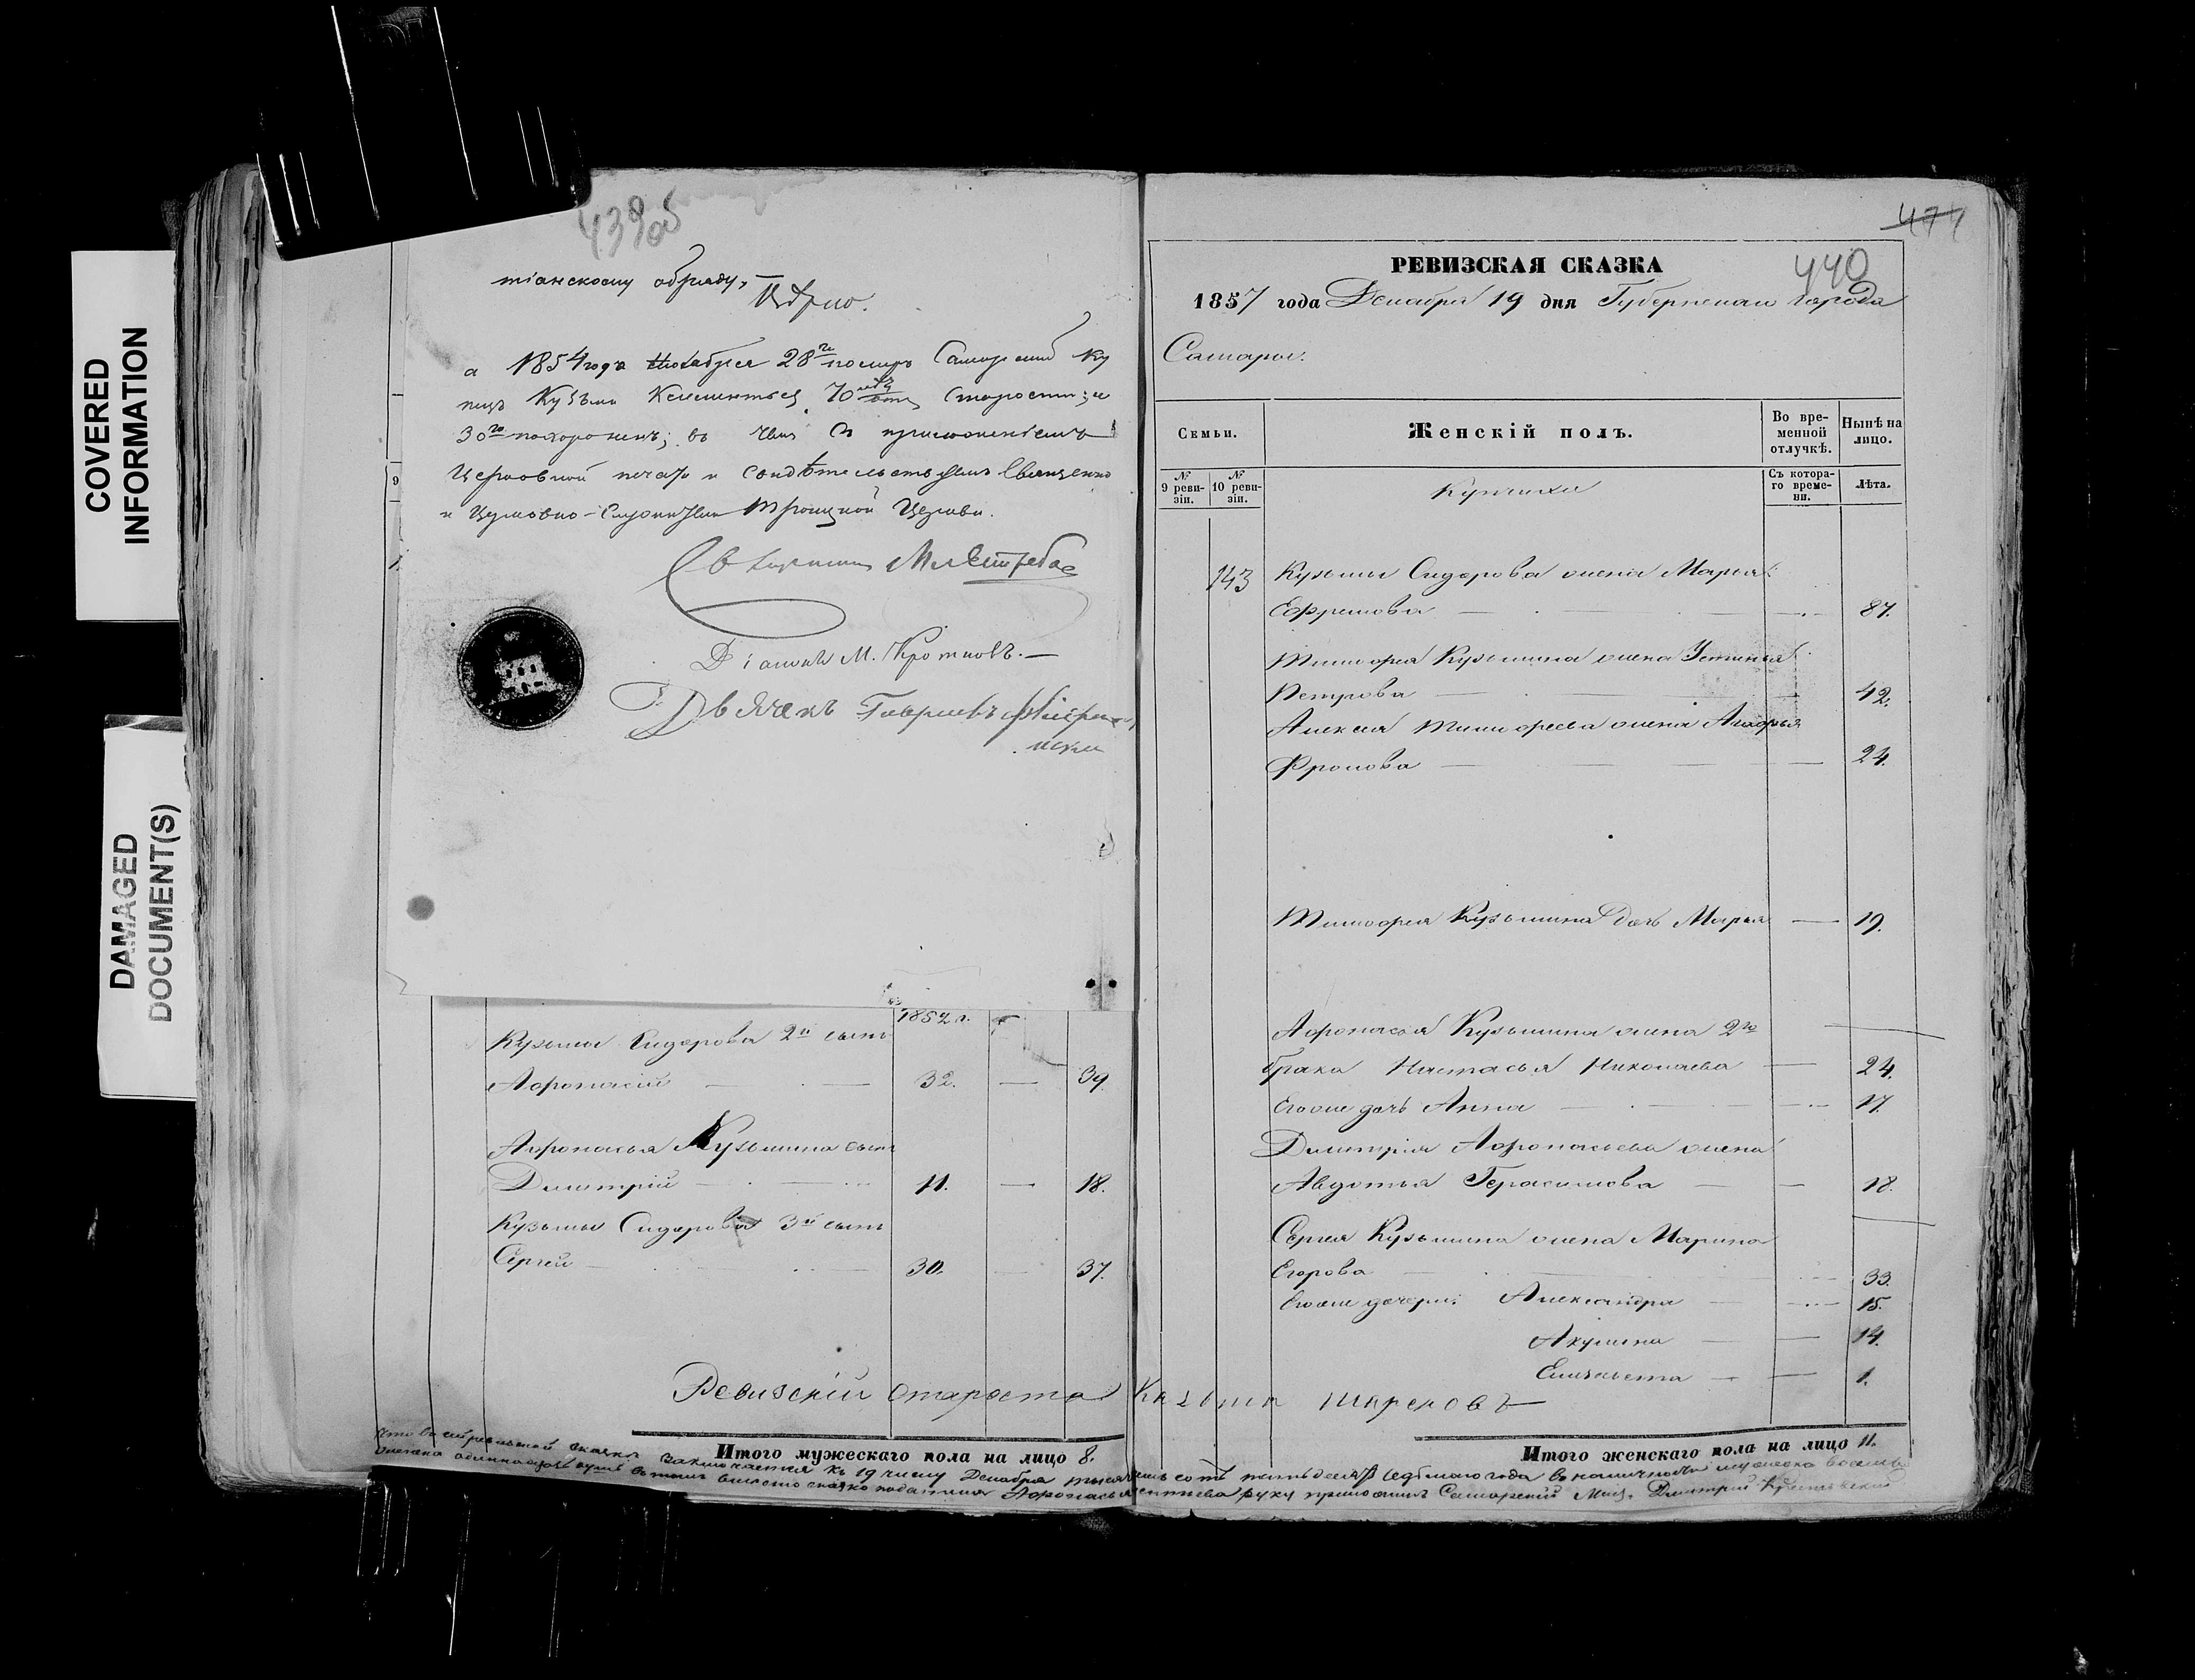 COVERED
INFORMATION
DAMAGED
DOCUMENT(S)
439об
тіанскому обряду,
а 1854 года Ноября 28го померъ Самарскій Ку
пецъ Кузьма 70 лѣтъ старости; и
30го похороненъ; въ чемъ съ приложеніемъ
Церковной печати и свидѣтельствуемъ Священно
и Церковно-Служители Троицкой Церкви.
Священникъ
Діаконъ М. Кротковъ.
Дьячекъ Гавріилъ
9
1852 г.
Кузьмы Сидорова 2й сынъ
Афонасій — 32. — 39.
Афонасья Кузьмина сынъ
Димитрій — 11. — 18.
Кузьмы Сидорова 3й сынъ
Сергей — 30. — 37.
Ревизскій староста
Итого мужескаго пола на лицо 8.
474
440
РЕВИЗСКАЯ СКАЗКА
1857 года Декабря 19 дня Губернскаго города
Самары.
Семьи.
Женскій полъ.
Во вре-
менной
отлучкѣ.
Нынѣ на
лицо.
№
9 реви-
зіи.
№
10 реви-
зіи.
Съ котора-
го време-
ни.
Лѣта.
143 Кузьмы Сидорова жена Марья
Ефремова — 87.
Тимофея Кузьмина жена Устинья
Петрова — 42.
Алексея Тимофеева жена
Фролова — 24.
Тимофея Кузьмина дочь Марья — 19.
Афонасья Кузьмина жена 2го
брака Настасья Николаева — 24.
Его же дочь Анна — 17.
Димитрія Афонасьева жена
Авдотья Герасимова — 18.
Сергея Кузьмина жена Марина
Егорова — 33.
Его же дочери: Александра — 15.
Акулина — 14.
Елизавета — 1.
Итого женскаго пола на лицо 11.
Что въ сей ревизской сказкѣ заключается къ 19 числу Декабря тысяча восемь сотъ пятьдесятъ седьмого года въ наличности мужеска восемь
женска одиннадцать душъ въ томъ вмѣсто руку приложилъ Самарскій Мѣщ. Дмитрій